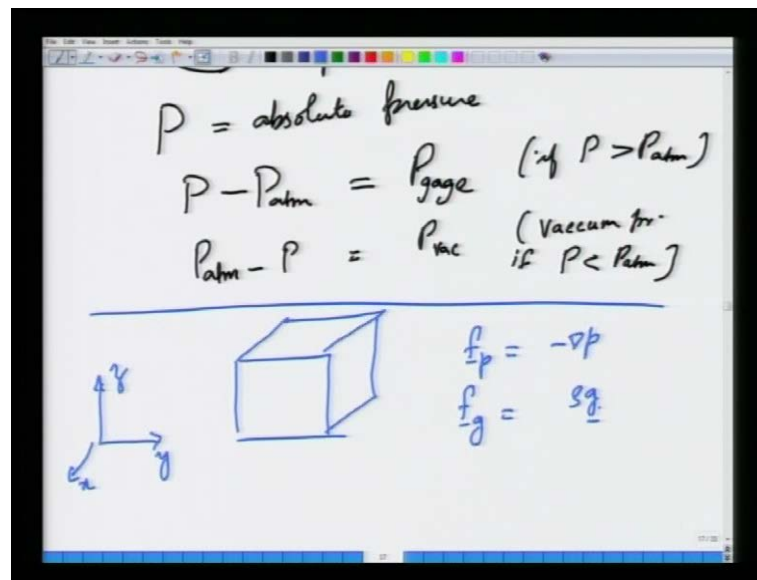 File Edit View Insert Actions Tools Help
P = absolute pressure
P - Patm = Pgage (if P > Patm)
Patm - P = Pvac (Vaccum pr. if P < Patm)
z
y
x
fp = -∇p
fg = ρg
17